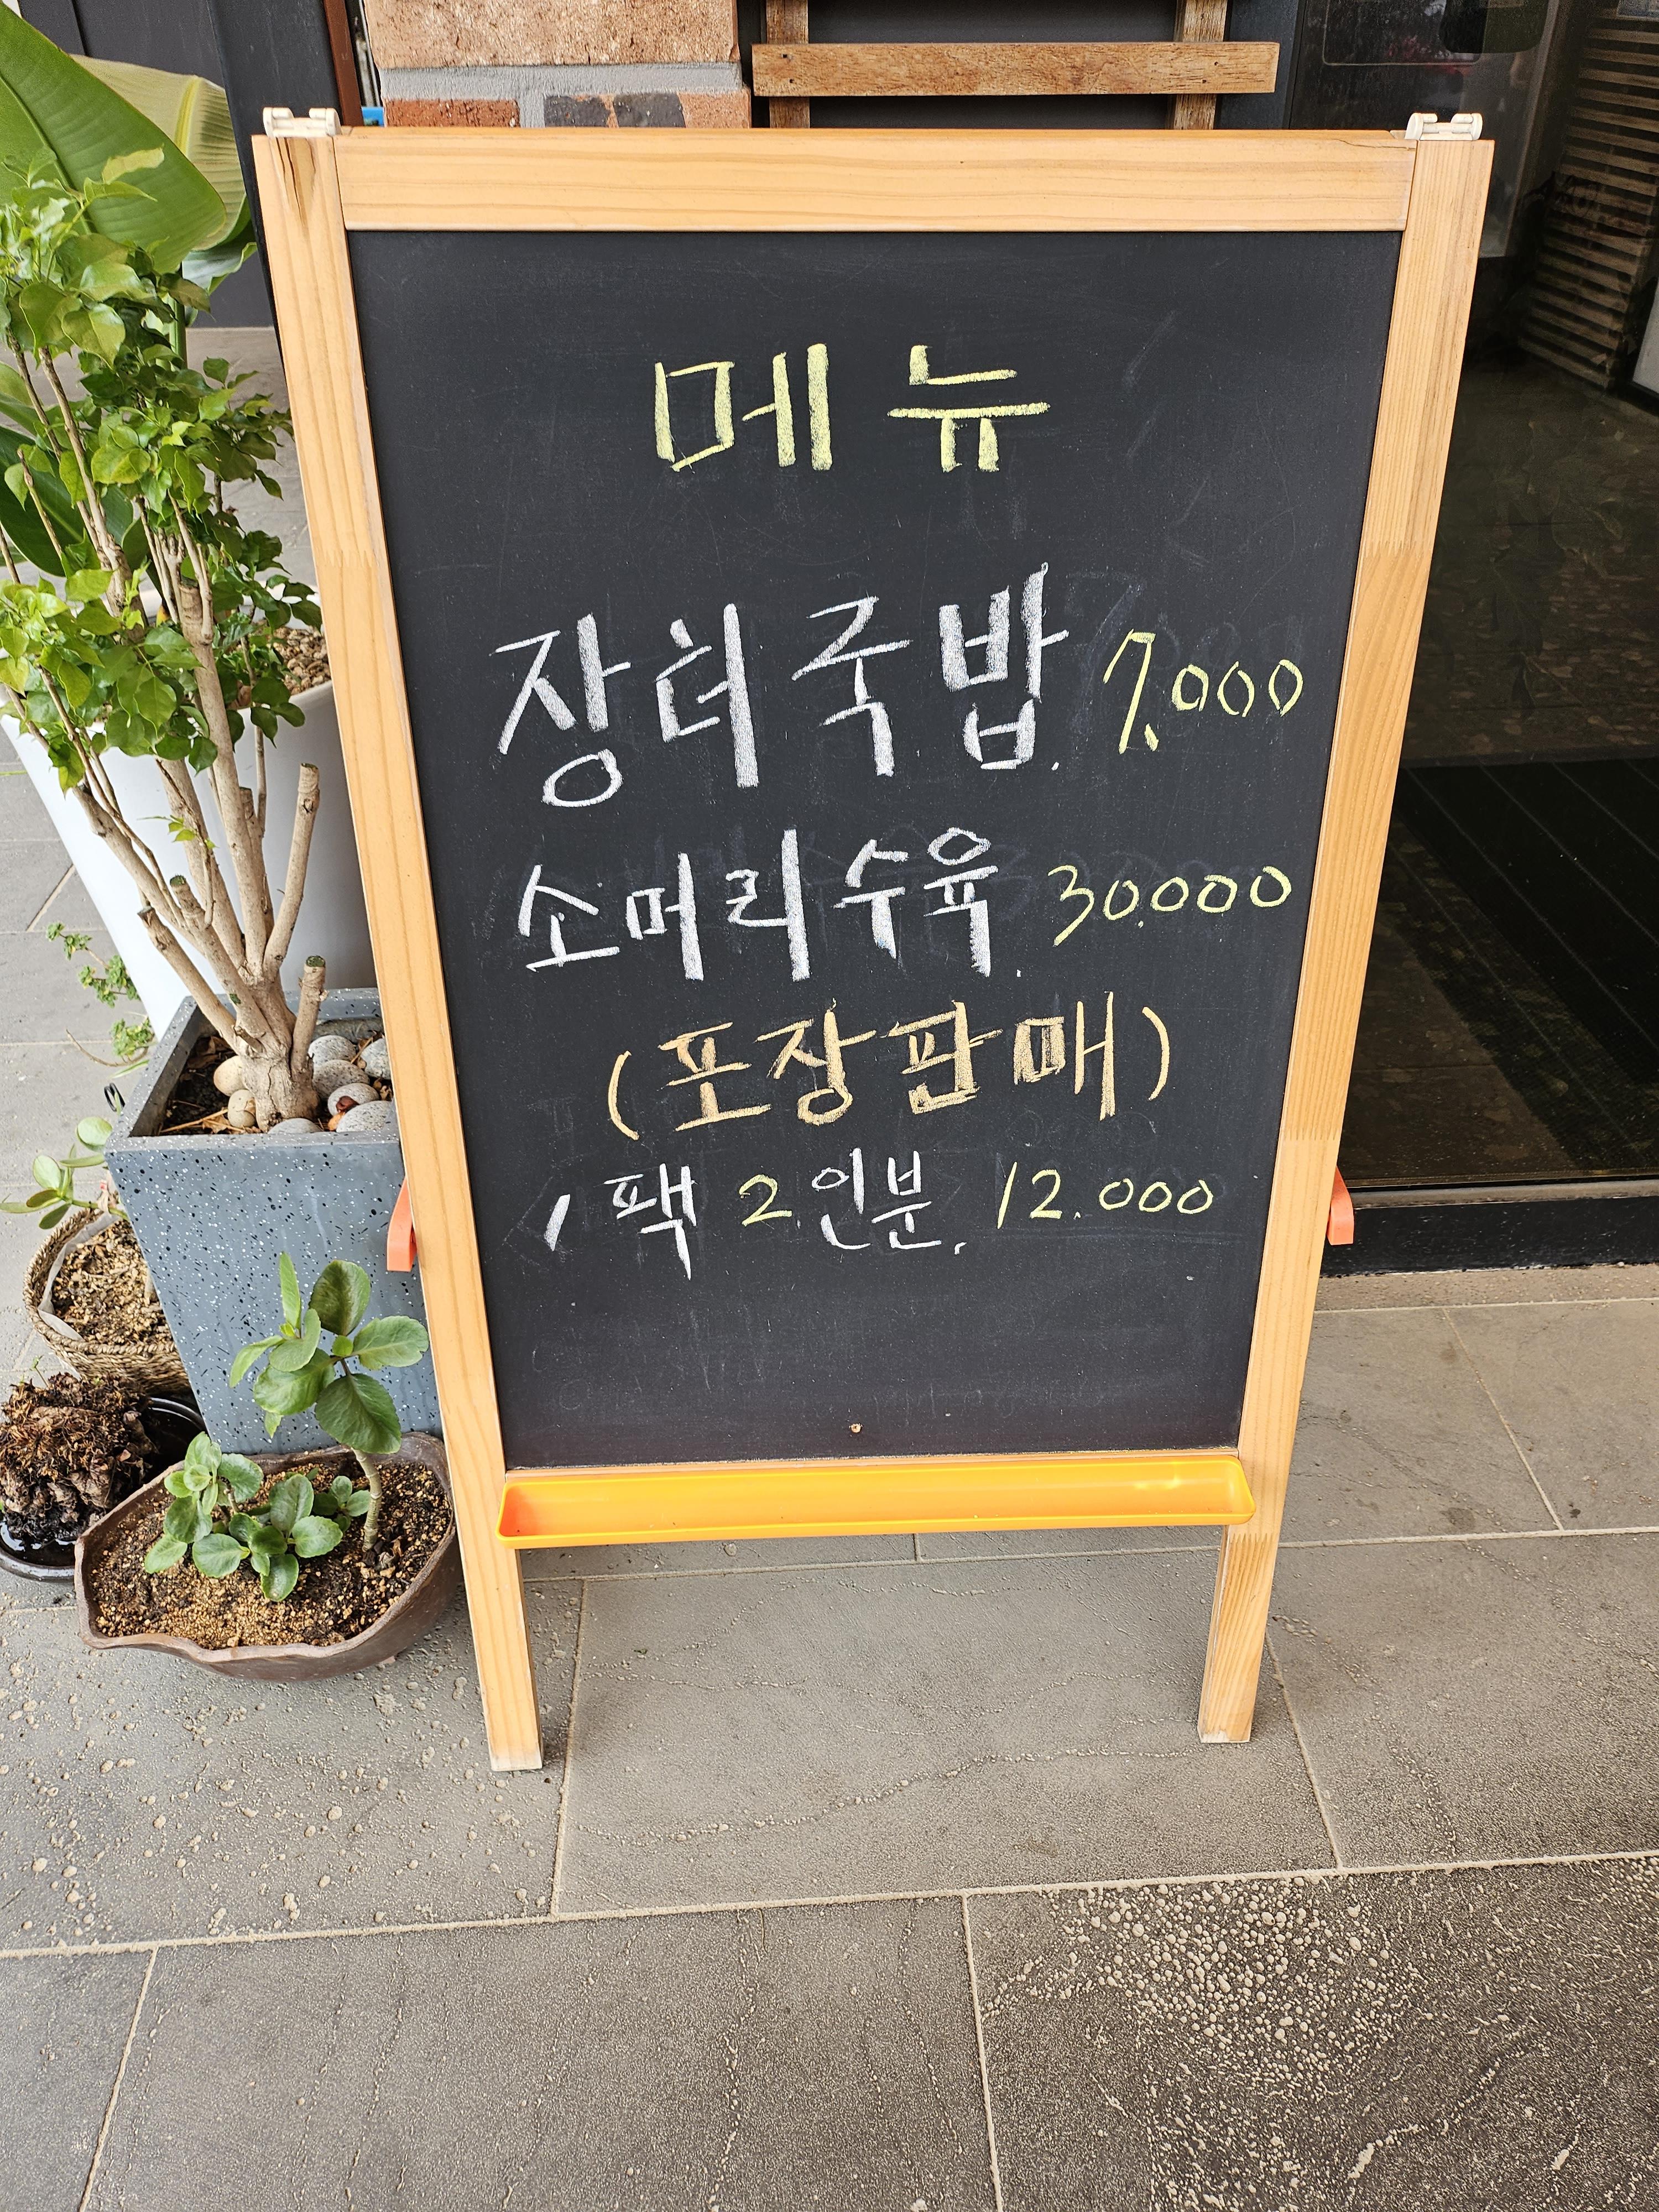 메뉴
장터국밥. 7.000
소머리수육. 30.000
(포장판매)
1팩 2.인분. 12.000